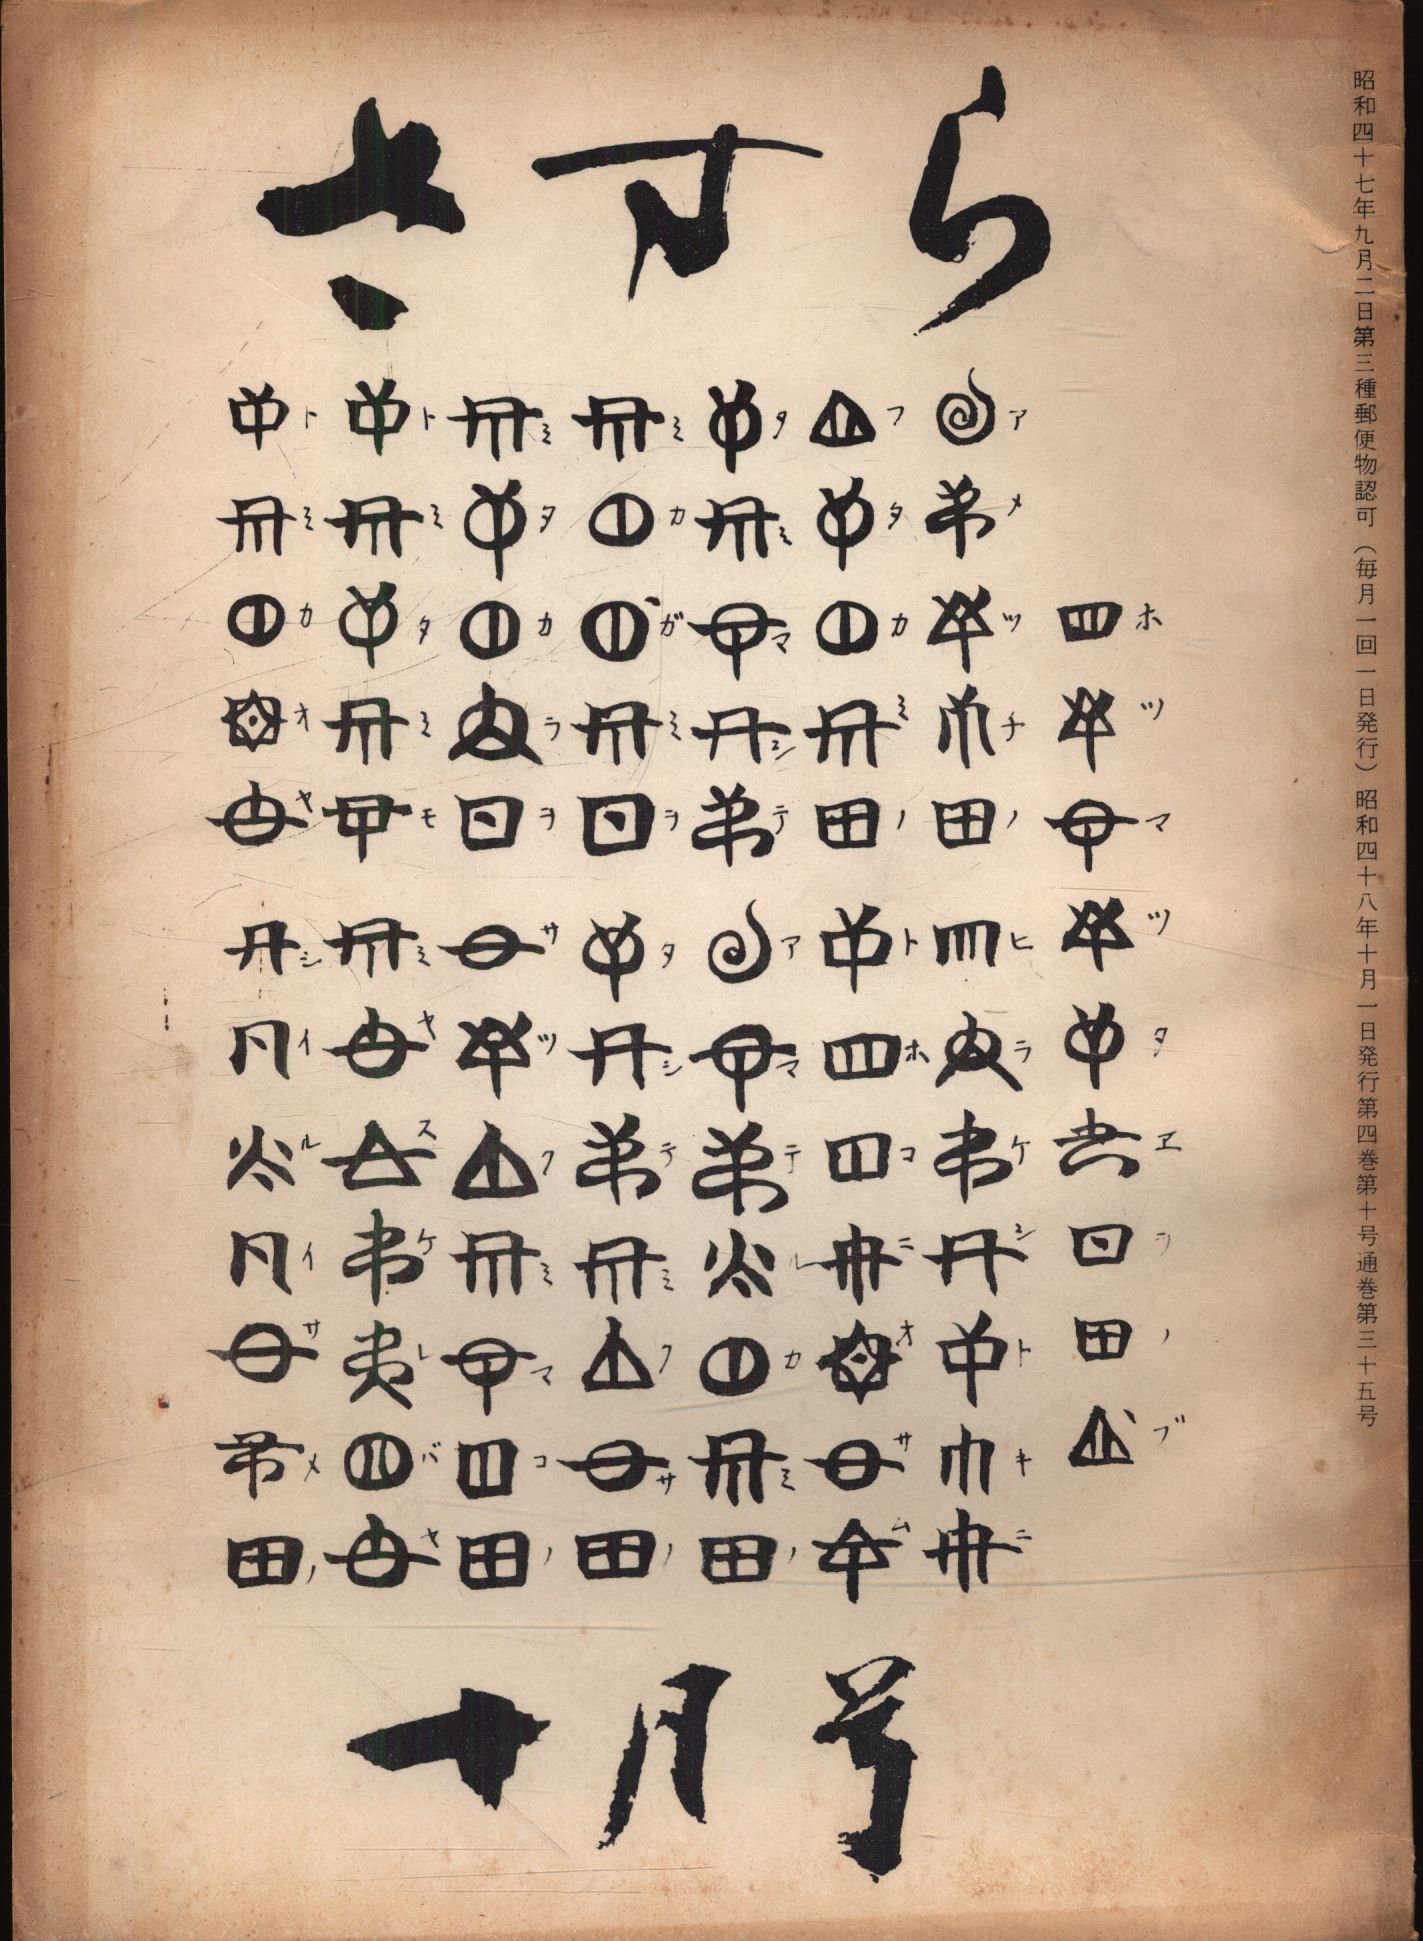 昭和四十七年九月二日第三種郵便物認可（毎月一回一日発行）昭和四十八年十月一日発行第四巻第十号通巻第三十五号
さすら
ホツマツタヱヲノブ
アメツチノ ヒラケシトキニ
フタカミノ トホコニオサム
タミマシテ アマテルカミノ
ミカガミヲ タシテミクサノ
ミタカラヲ サツクミマコノ
トミタミモ ミヤスケレバヤ
トミカオヤ シイルイサメノ
十月号